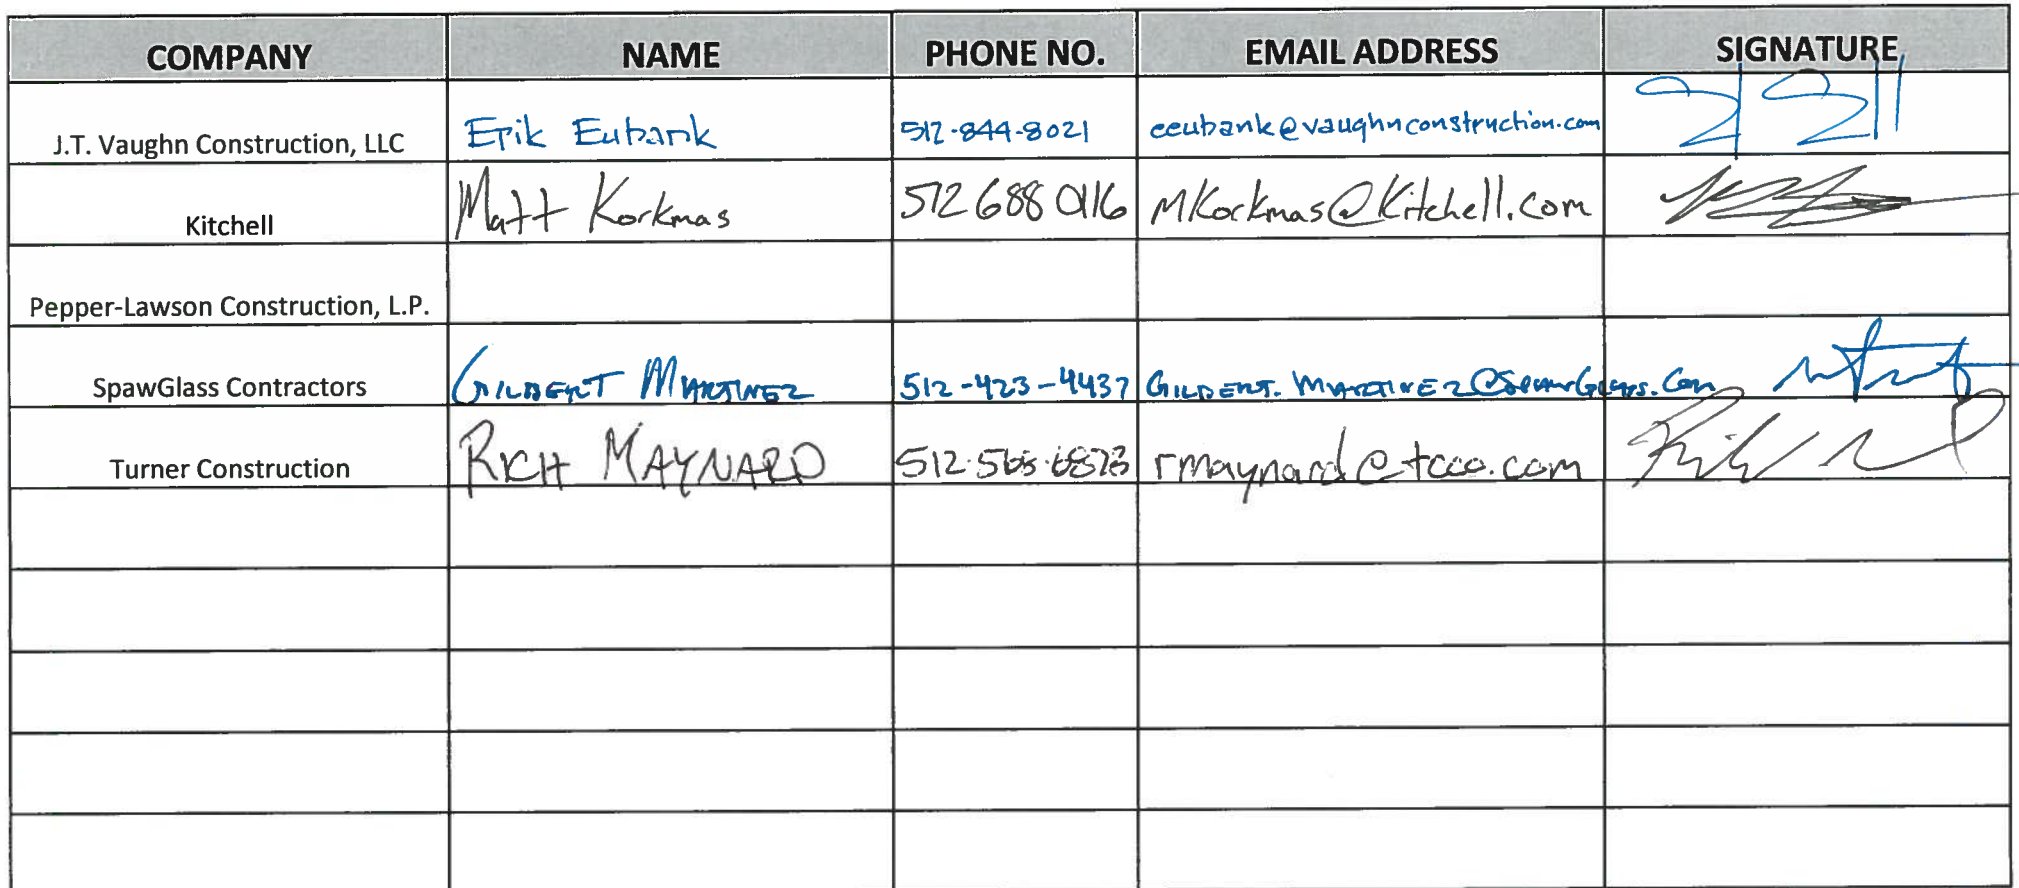 COMPANY NAME PHONE NO. EMAIL ADDRESS SIGNATURE
J.T. Vaughn Construction, LLC Erik Eubank 512-844-8021 eeubank@vaughnconstruction.com
Kitchell Matt Korkmas 512 688 0116 MKorkmas@Kitchell.com
Pepper-Lawson Construction, L.P.
SpawGlass Contractors GILBERT MARTINEZ 512-423-4437 GILBERT.MARTINEZ@SpawGlass.Com
Turner Construction RICH MAYNARD rmaynard@tcco.com